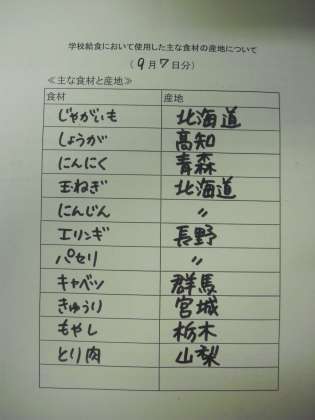 学校給食において使用した主な食材の産地について
(9月7日分)
≪主な食材と産地≫
食材 産地
じゃがいも 北海道
しょうが 高知
にんにく 青森
玉ねぎ 北海道
にんじん 〃
エリンギ 長野
パセリ 〃
キャベツ 群馬
きゅうり 宮城
もやし 栃木
とり肉 山梨